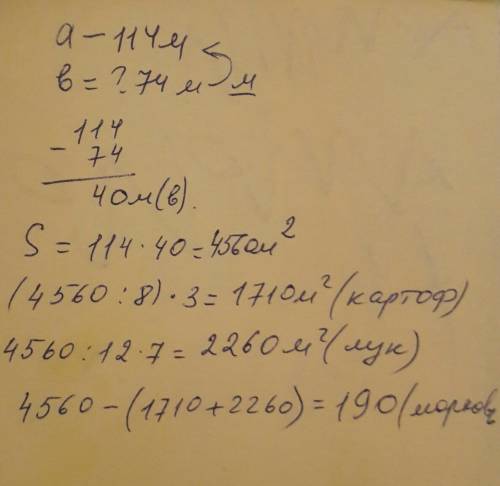 a – 114 м
в = ? 74 м м
- 114
74
40 м (в).
S = 114 · 40 = 4560 м²
(4560 : 8) · 3 = 1710 м² (картоф)
4560 : 12 · 7 = 2260 м² (лук)
4560 – (1710 + 2260) = 190 (морковь